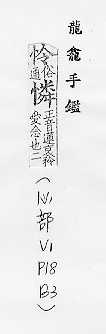 龍龕手鑑
怜俗通憐正音蓮哀矜
愛念也二
(心部V1
P18
B3)